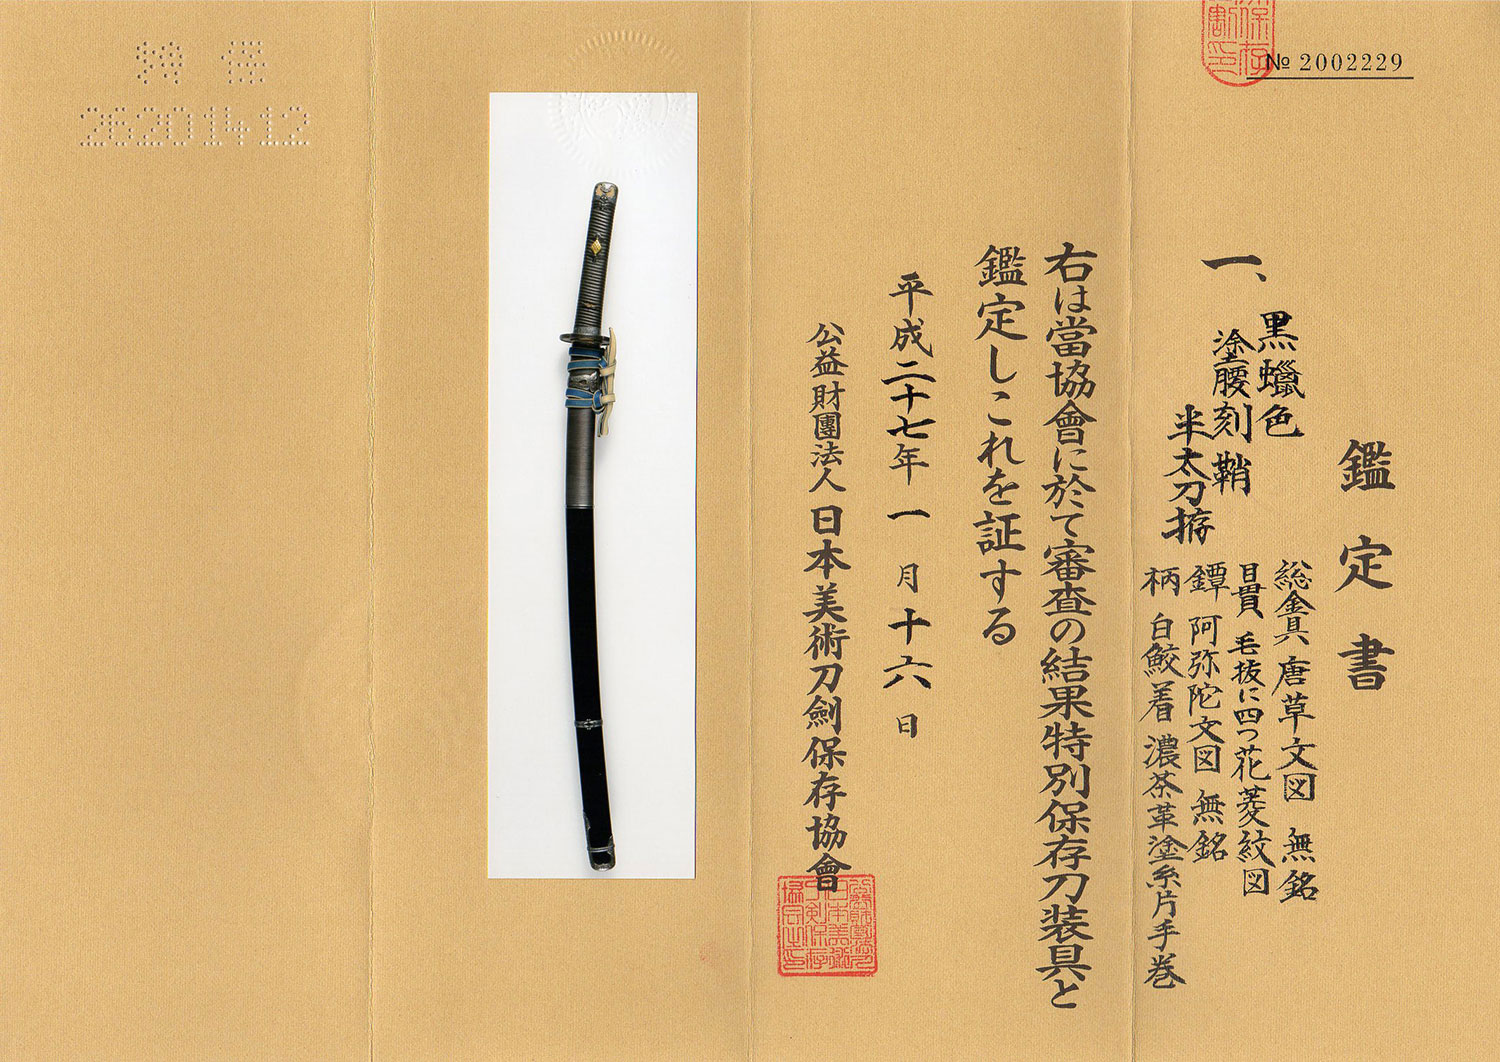 № 2002229
鑑定書
一、
黒蠟色
塗腰刻鞘
半太刀拵
総金具 唐草文図 無銘
目貫 毛抜に四つ花菱紋図
鐔 阿弥陀文図 無銘
柄 白鮫着 濃茶革塗糸片手巻
右は當協會に於て審査の結果特別保存刀装具と
鑑定しこれを証する
平成二十七年一月十六日
公益財團法人日本美術刀劍保存協會
特 保
26201412